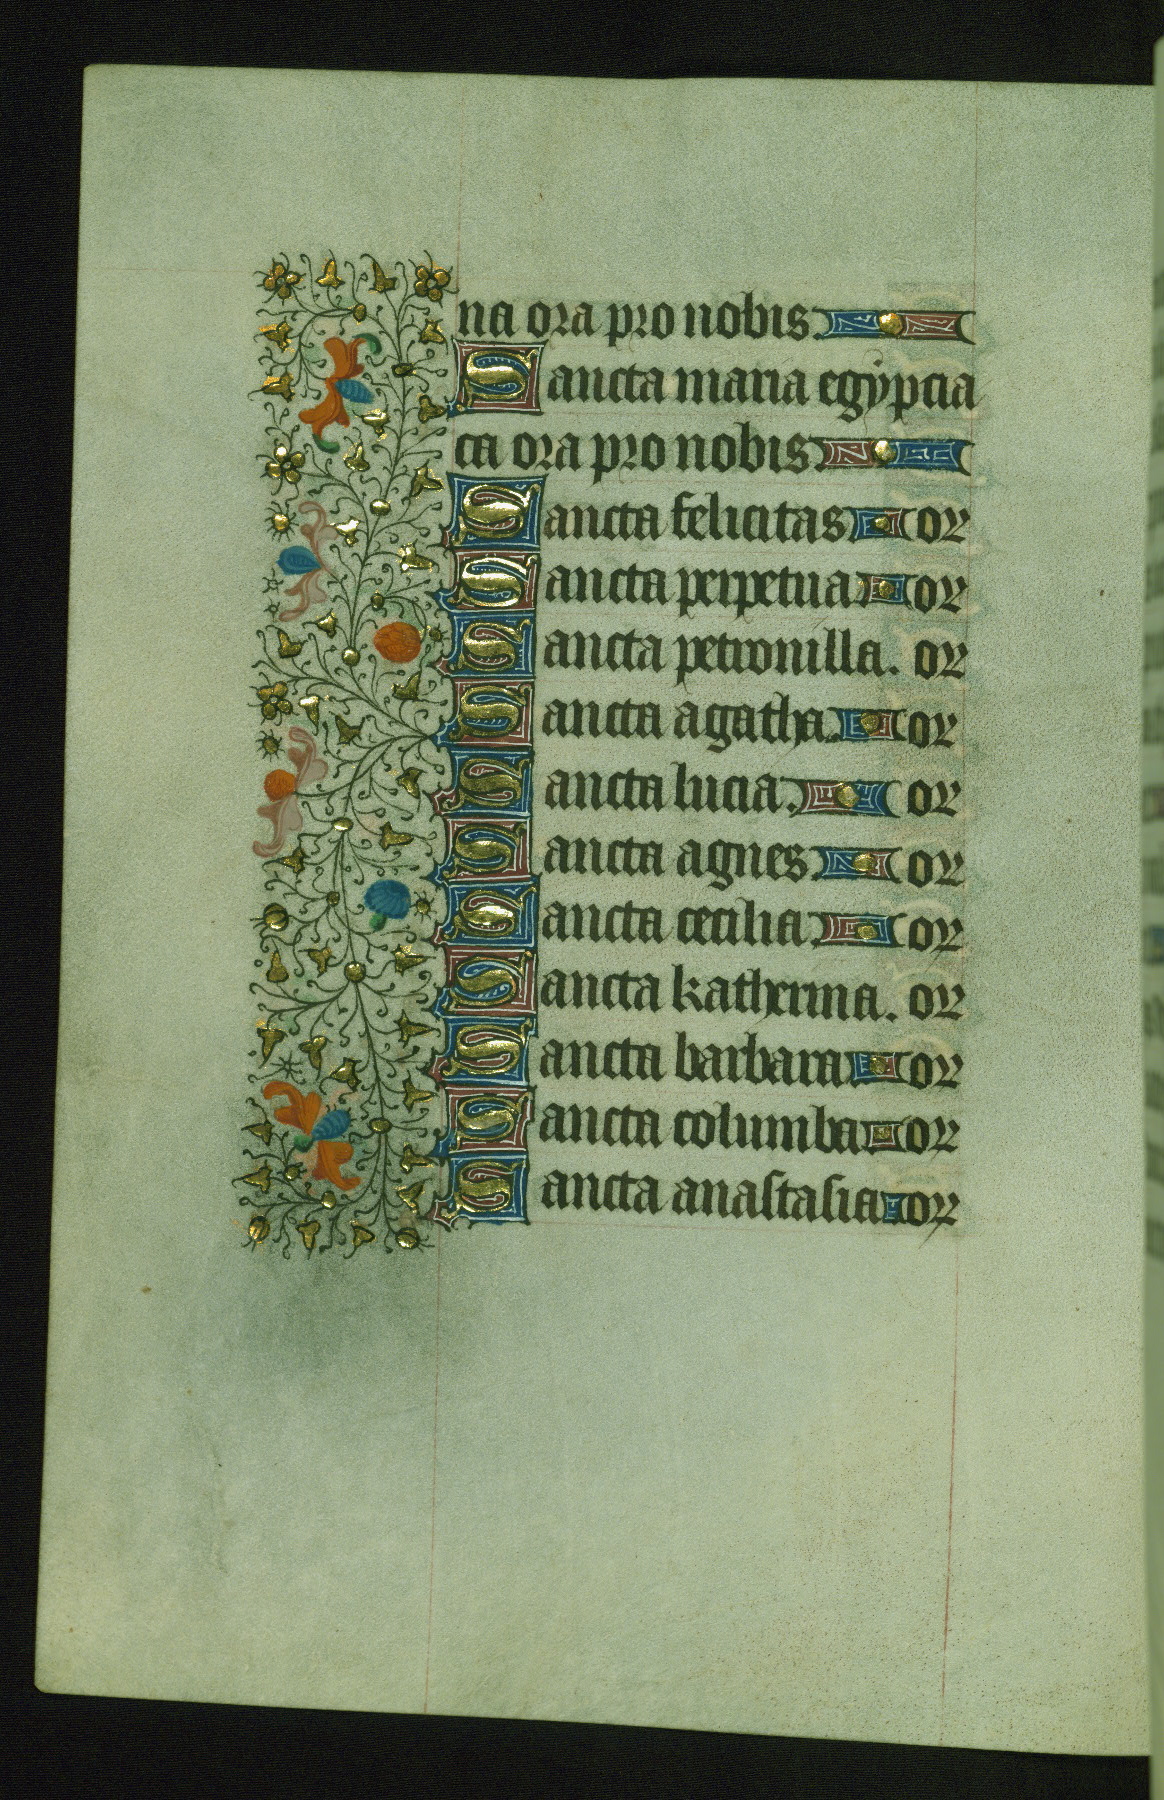 na ora pro nobis
Sancta maria egypcia
ca ora pro nobis
Sancta felicitas or
Sancta perpetua or
Sancta petronilla. or
Sancta agatha. or
Sancta lucia. or
Sancta agnes. or
Sancta cecilia. or
Sancta katherina. or
Sancta barbara or
Sancta columba or
Sancta anastasia or